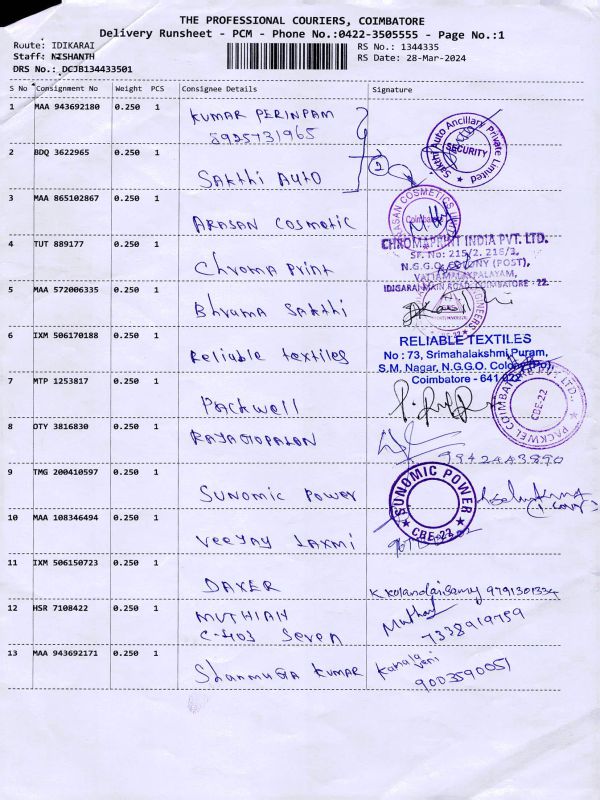 THE PROFESSIONAL COURIERS, COIMBATORE
Delivery Runsheet - PCM - Phone No.:0422-3505555 - Page No.:1
Route: IDIKARAI
RS No.: 1344335
Staff: NISHANTH
RS Date: 28-Mar-2024
DRS No.: DCJB134433501
S No Consignment No Weight PCS Consignee Details Signature
1 MAA 943692180 0.250 1 KUMAR PERINPAM
8925731965
Sakthi Auto Ancillary Private Limited
SECURITY
2 BDQ 3622965 0.250 1 SAKthi AUTO
2
3 MAA 865102867 0.250 1 ARASAN COSMETIC
Coimbatore
4 TUT 889177 0.250 1 Chroma Print
CHROMAPRINT INDIA PVT. LTD.
SF. No: 215/2, 216/2,
N.G.G.O. COLONY (POST),
VATTAMALAIKPALAYAM,
IDIGARAI MAIN ROAD, COIMBATORE - 22.
5 MAA 572006335 0.250 1 Bhrama Sakthi
6 IXM 506170188 0.250 1 Reliable textiles
RELIABLE TEXTILES
No : 73, Srimahalakshmi Puram,
S.M. Nagar, N.G.G.O. Colony (Po),
Coimbatore - 641 022
7 MTP 1253817 0.250 1 Packwell
CBE-22
8 OTY 3816830 0.250 1 RAJAGOPALON
9942443890
9 TMG 200410597 0.250 1 SUNOMIC POWER
SUNOMIC POWER
CBE-22
10 MAA 108346494 0.250 1 VEEJAY LAXMI
11 IXM 506150723 0.250 1 DAXER
K. Kolandaisamy 9791301334
12 HSR 7108422 0.250 1 MUTHIAH
C-403 Seven
7338919759
13 MAA 943692171 0.250 1 Shanmuga KUMAR
9003590051